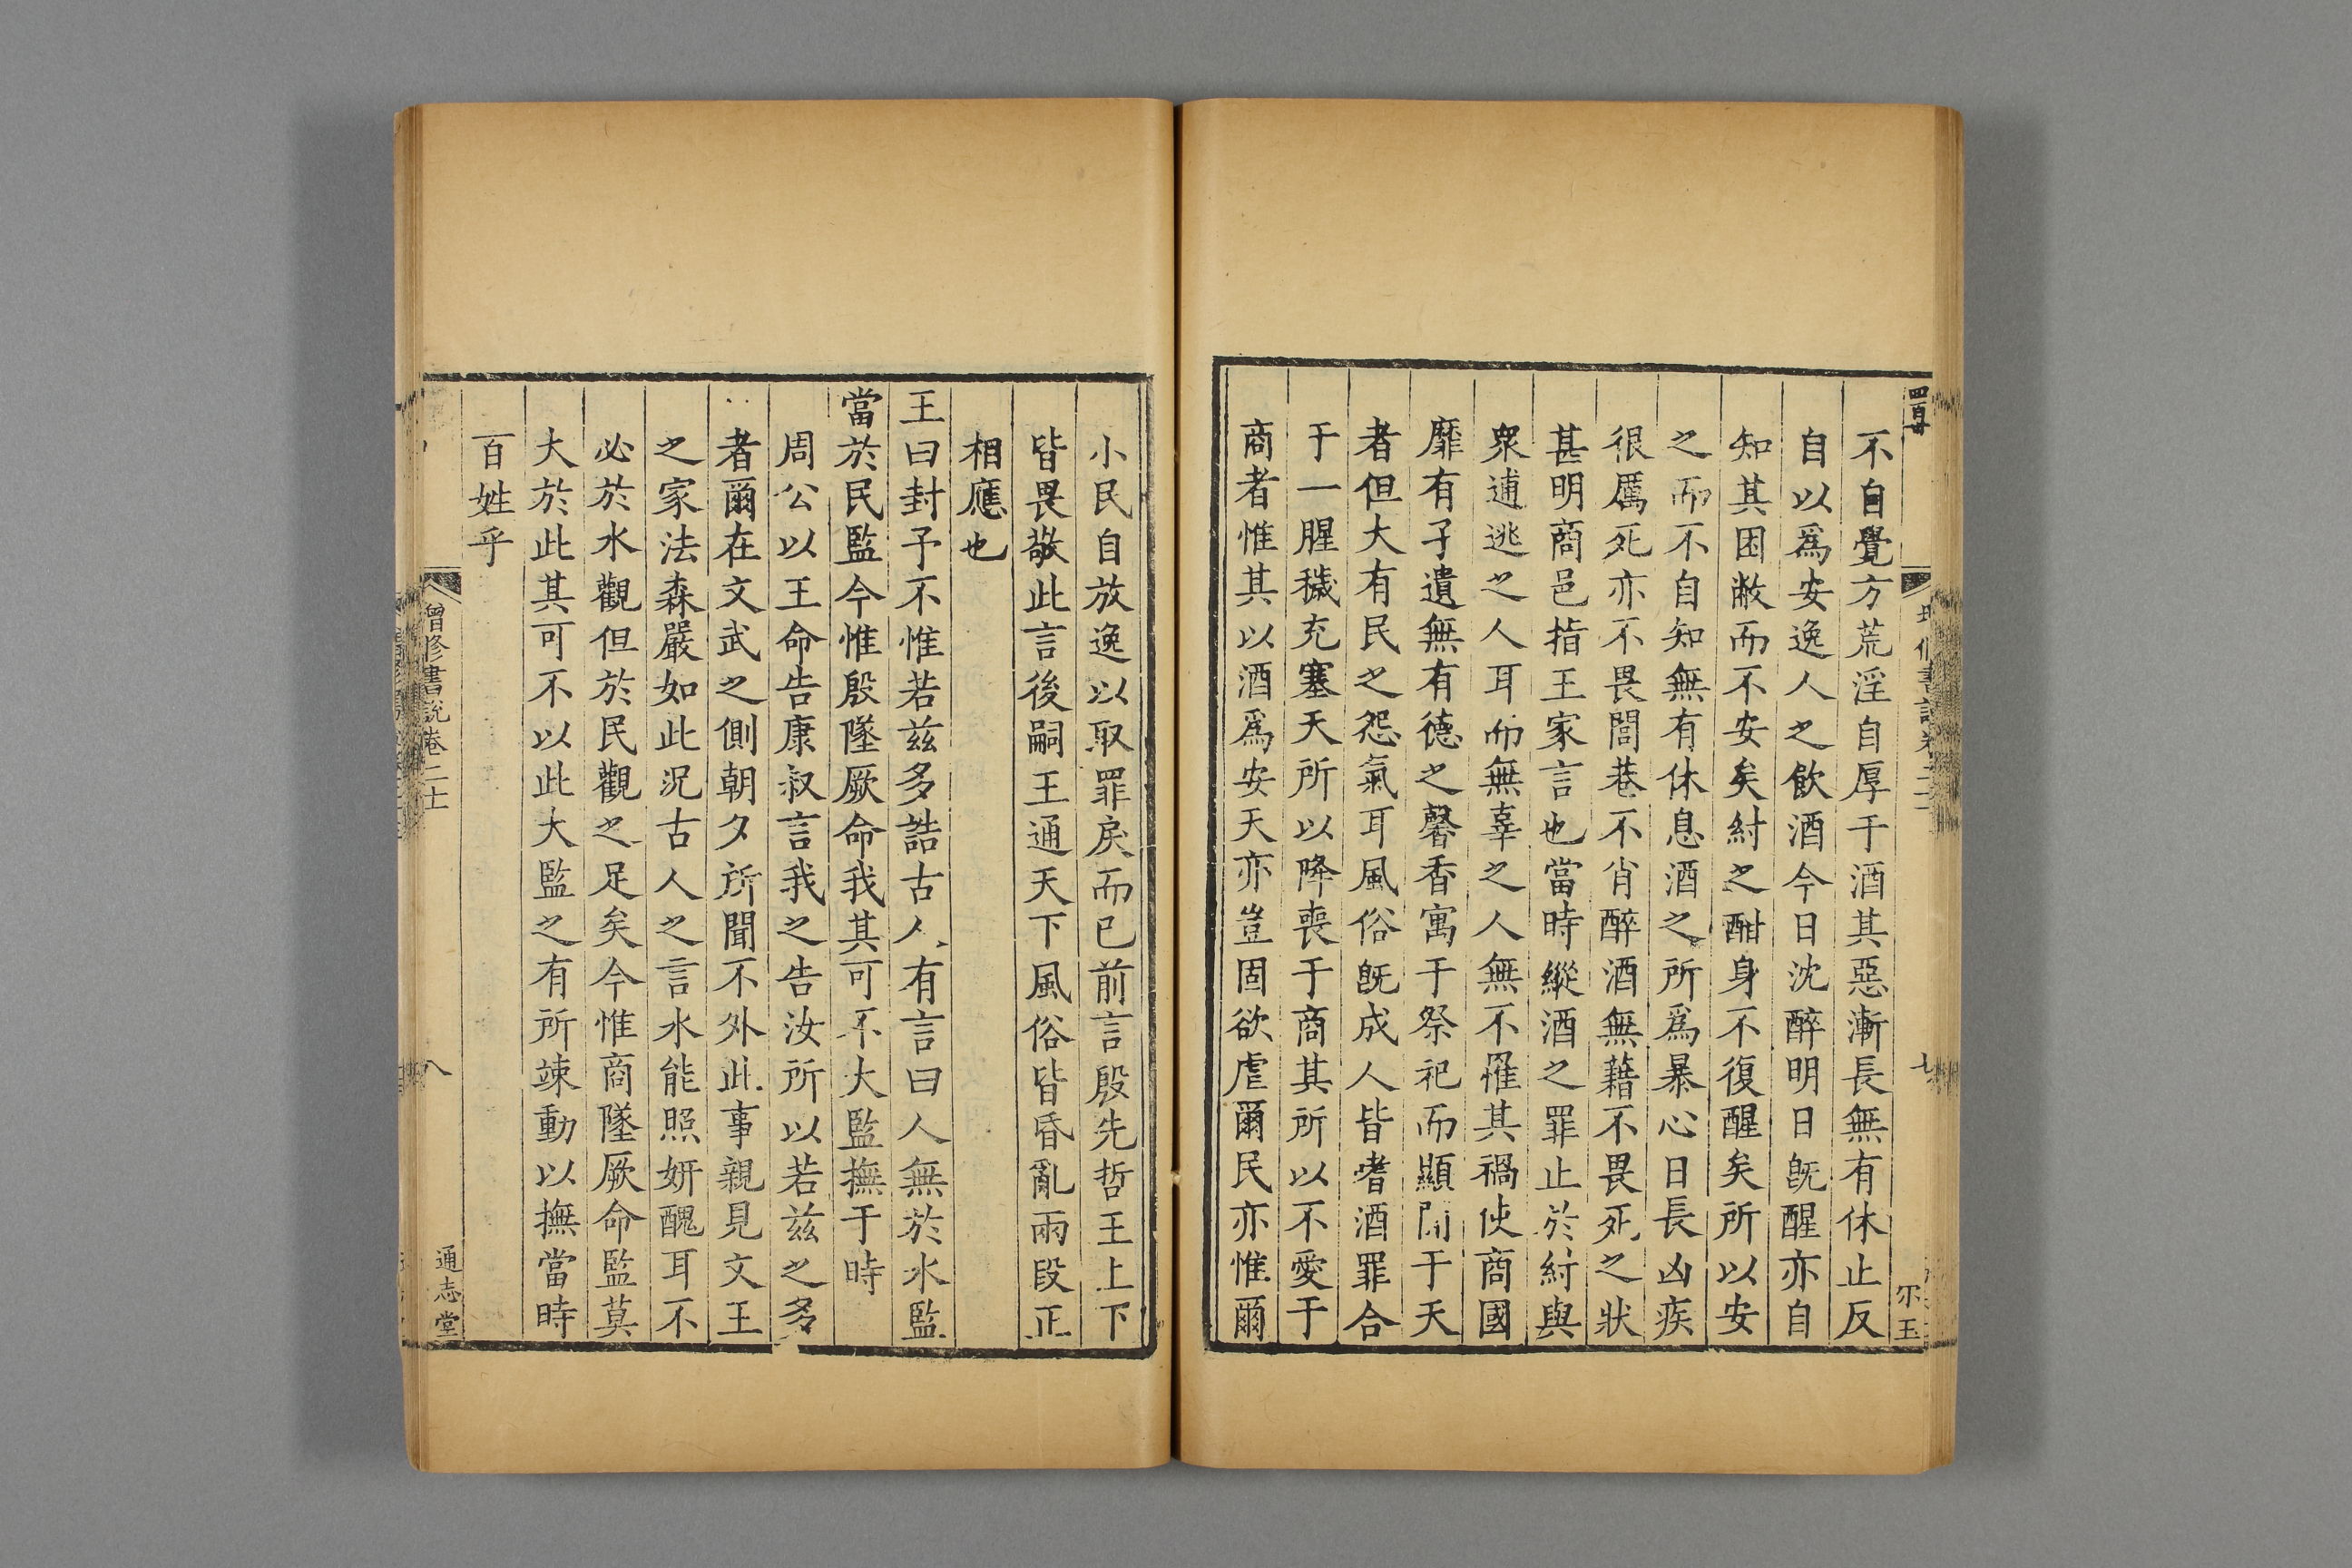 不自覺方荒淫自厚于酒其惡漸長無有休止反
自以爲安逸人之飲酒今日沈醉明日旣醒亦自
知其困敝而不安矣紂之酣身不復醒矣所以安
之而不自知無有休息酒之所爲暴心日長凶疾
很厲死亦不畏閭巷不肖醉酒無藉不畏死之狀
甚明商邑指王家言也當時縱酒之罪止於紂與
衆逋逃之人耳而無辜之人無不罹其禍使商國
靡有孑遺無有德之馨香寓于祭祀而顯聞于天
者但大有民之怨氣耳風俗旣成人皆嗜酒罪合
于一腥穢充塞天所以降喪于商其所以不愛于
商者惟其以酒爲安天亦豈固欲虐爾民亦惟爾
小民自放逸以取罪戾而已前言殷先哲王上下
皆畏敬此言後嗣王通天下風俗皆昏亂兩段正
相應也
王曰封予不惟若茲多誥古人有言曰人無於水監
當於民監今惟殷墜厥命我其可不大監撫于時
周公以王命告康叔言我之告汝所以若茲之多
者爾在文武之側朝夕所聞不外此事親見文王
之家法森嚴如此況古人之言水能照妍醜耳不
必於水觀但於民觀之足矣今惟商墜厥命監莫
大於此其可不以此大監之有所竦動以撫當時
百姓乎
增修書說卷二十
八
通志堂